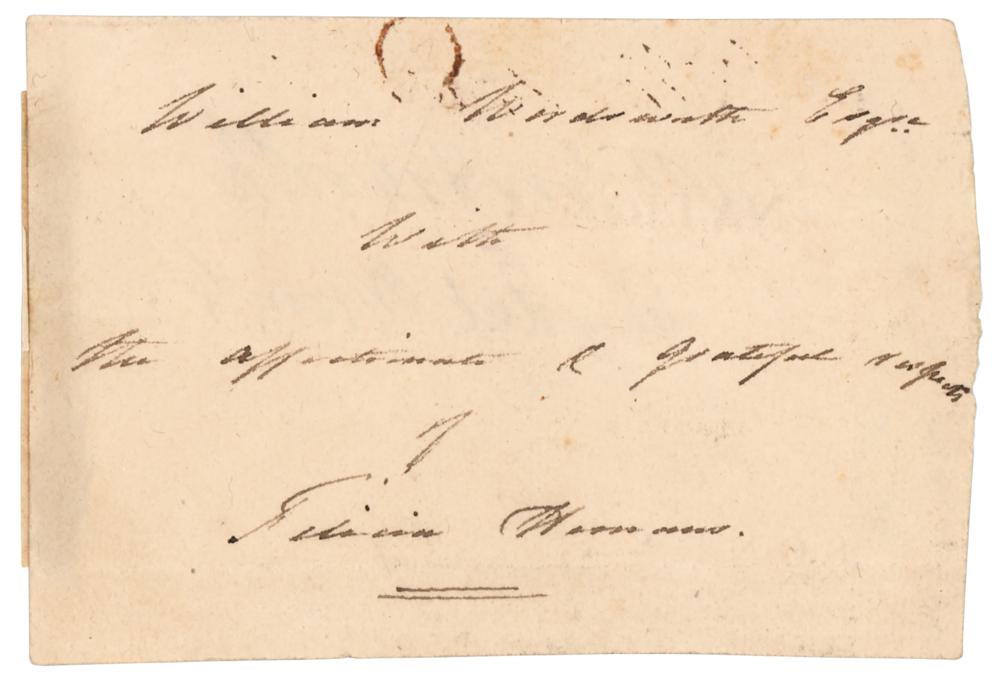 William Wordsworth Esqre
With
the affectionate & grateful respects
of
Felicia Hemans.